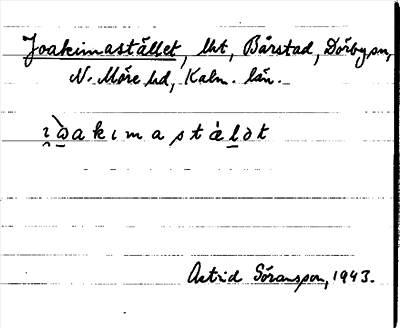 Joakimastället, lht, Bårstad, Dörby sn,
N. Möre hd, Kalm. län.
Astrid Göransson, 1943.